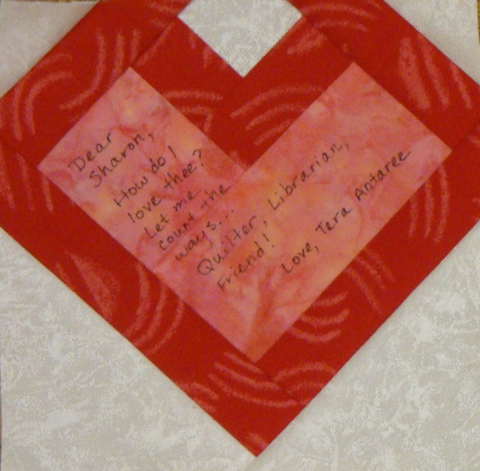 Dear
Sharon,
How do I
love thee?
Let me
count the
ways...
Quilter, Librarian,
Friend!
Love, Tera Antaree